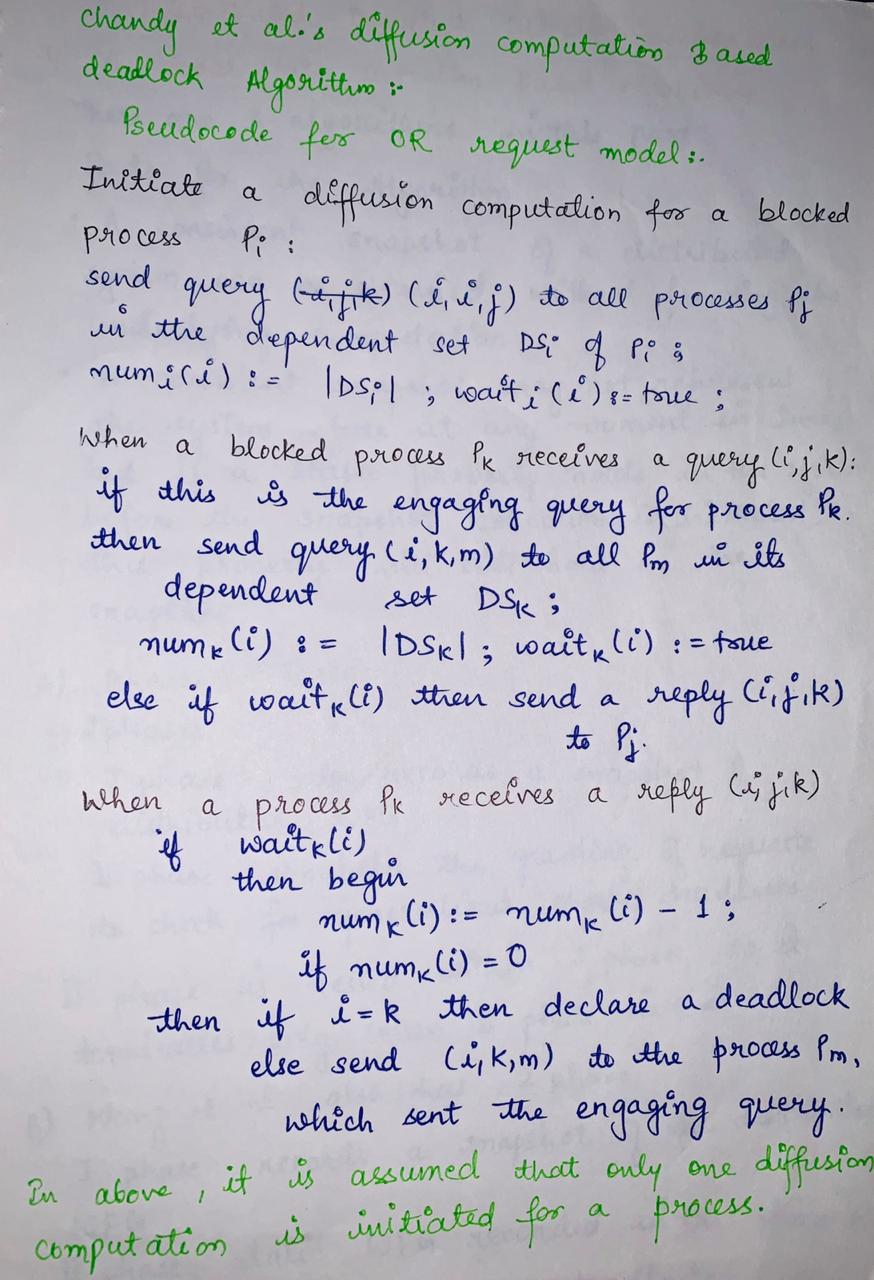 Chandy et al.'s diffusion computation Based
deadlock Algorithm :-
Pseudocode for OR request model :.
Initiate a diffusion computation for a blocked
process Pi :
send query (i,j,k) (i, i, j) to all processes Pj
in the dependent set DSi of Pi ;
numi(i) := |DSi| ; waiti(i) := true ;
When a blocked process Pk receives a query (i,j,k):
if this is the engaging query for process Pk.
then send query (i, k, m) to all Pm in its
dependent set DSk ;
numk(i) := |DSk| ; waitk(i) := true
else if waitk(i) then send a reply (i,j,k)
to Pj.
When a process Pk receives a reply (i,j,k)
if waitk(i)
then begin
numk(i) := numk(i) - 1 ;
if numk(i) = 0
then if i = k then declare a deadlock
else send (i, k, m) to the process Pm,
which sent the engaging query.
In above, it is assumed that only one diffusion
computation is initiated for a process.